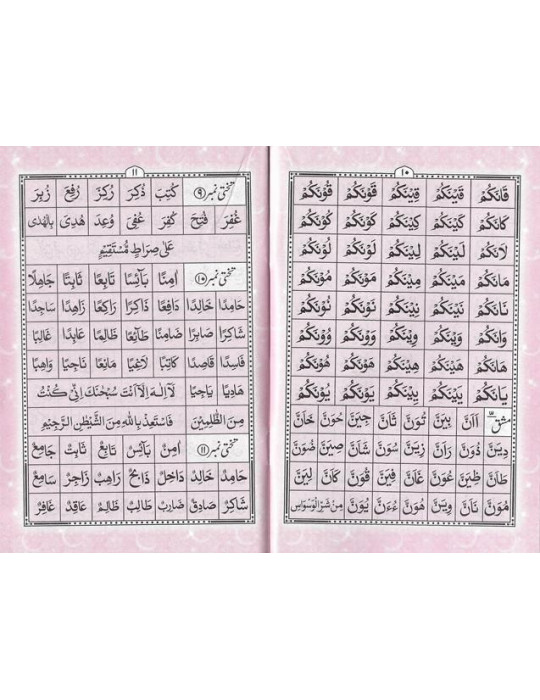 ١٠
قَانَكُمْ قَيْنَكُمْ قِيْنَكُمْ قَوْنَكُمْ قُوْنَكُمْ
كَانَكُمْ كَيْنَكُمْ كِيْنَكُمْ كَوْنَكُمْ كُوْنَكُمْ
لَانَكُمْ لَيْنَكُمْ لِيْنَكُمْ لَوْنَكُمْ لُوْنَكُمْ
مَانَكُمْ مَيْنَكُمْ مِيْنَكُمْ مَوْنَكُمْ مُوْنَكُمْ
نَانَكُمْ نَيْنَكُمْ نِيْنَكُمْ نَوْنَكُمْ نُوْنَكُمْ
وَانَكُمْ وَيْنَكُمْ وِيْنَكُمْ وَوْنَكُمْ وُوْنَكُمْ
هَانَكُمْ هَيْنَكُمْ هِيْنَكُمْ هَوْنَكُمْ هُوْنَكُمْ
يَانَكُمْ يَيْنَكُمْ يِيْنَكُمْ يَوْنَكُمْ يُوْنَكُمْ
مشق اَانَ بِيْنَ تُوْنَ ثَانَ جِيْنَ حُوْنَ خَانَ
دِيْنَ ذُوْنَ رَانَ زِيْنَ سُوْنَ شَانَ صِيْنَ ضُوْنَ
طَانَ ظِيْنَ عُوْنَ غَانَ فِيْنَ قُوْنَ كَانَ لِيْنَ
مُوْنَ نَانَ وِيْنَ هُوْنَ ءُءُنَ يُوْنَ مِنْ شَرِّ الْوَسْوَاسِ
١١
تختی نمبر ٩ كُتِبَ ذُكِرَ رُكِزَ رُفِعَ زُبِرَ
غُفِرَ فُتِحَ كُفِرَ عُفِيَ وُعِدَ هُدِيَ بِالْهُدٰى
عَلٰى صِرَاطٍ مُّسْتَقِيْمٍ
تختی نمبر ١٠ اٰمِنًا بَآئِسًا تَابِعًا ثَابِتًا جَاهِلًا
حَامِدًا خَالِدًا دَافِعًا ذَاكِرًا رَاكِعًا زَاهِدًا سَاجِدًا
شَاكِرًا صَابِرًا ضَامِنًا طَآئِعًا ظَالِمًا عَابِدًا غَالِبًا
فَاسِدًا قَاصِدًا كَاتِبًا لَاغِيًا مَانِعًا نَاجِيًا وَاهِبًا
هَادِيًا يَاجِيًا لَآ اِلٰهَ اِلَّآ اَنْتَ سُبْحٰنَكَ اِنِّىْ كُنْتُ
مِنَ الظّٰلِمِيْنَ فَاسْتَعِذْ بِاللّٰهِ مِنَ الشَّيْطٰنِ الرَّجِيْمِ
تختی نمبر ١١ اٰمِنٌ بَآئِسٌ تَابِعٌ ثَابِتٌ جَامِعٌ
حَامِدٌ خَالِدٌ دَاخِلٌ ذَابِحٌ رَاهِبٌ زَاجِرٌ سَامِعٌ
شَاكِرٌ صَادِقٌ ضَارِبٌ طَالِبٌ ظَالِمٌ عَاقِدٌ غَافِرٌ